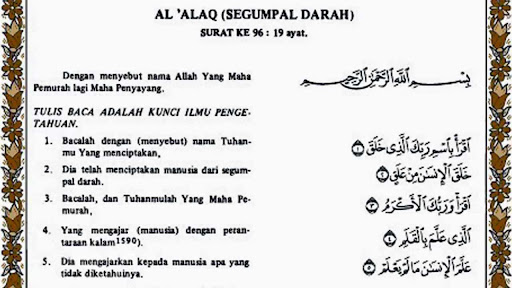 AL 'ALAQ (SEGUMPAL DARAH)
SURAT KE 96 : 19 ayat.
Dengan menyebut nama Allah Yang Maha
Pemurah lagi Maha Penyayang.
بِسْمِ اللَّهِ الرَّحْمَٰنِ الرَّحِيمِ
TULIS BACA ADALAH KUNCI ILMU PENGE-
TAHUAN.
1. Bacalah dengan (menyebut) nama Tuhan-
mu Yang menciptakan,
اقْرَأْ بِاسْمِ رَبِّكَ الَّذِي خَلَقَ ١
2. Dia telah menciptakan manusia dari segum-
pal darah.
خَلَقَ الْإِنْسَانَ مِنْ عَلَقٍ ٢
3. Bacalah, dan Tuhanmulah Yang Maha Pe-
murah,
اقْرَأْ وَرَبُّكَ الْأَكْرَمُ ٣
4. Yang mengajar (manusia) dengan peran-
taraan kalam1590).
الَّذِي عَلَّمَ بِالْقَلَمِ ٤
5. Dia mengajarkan kepada manusia apa yang
tidak diketahuinya.
عَلَّمَ الْإِنْسَانَ مَا لَمْ يَعْلَمْ ٥